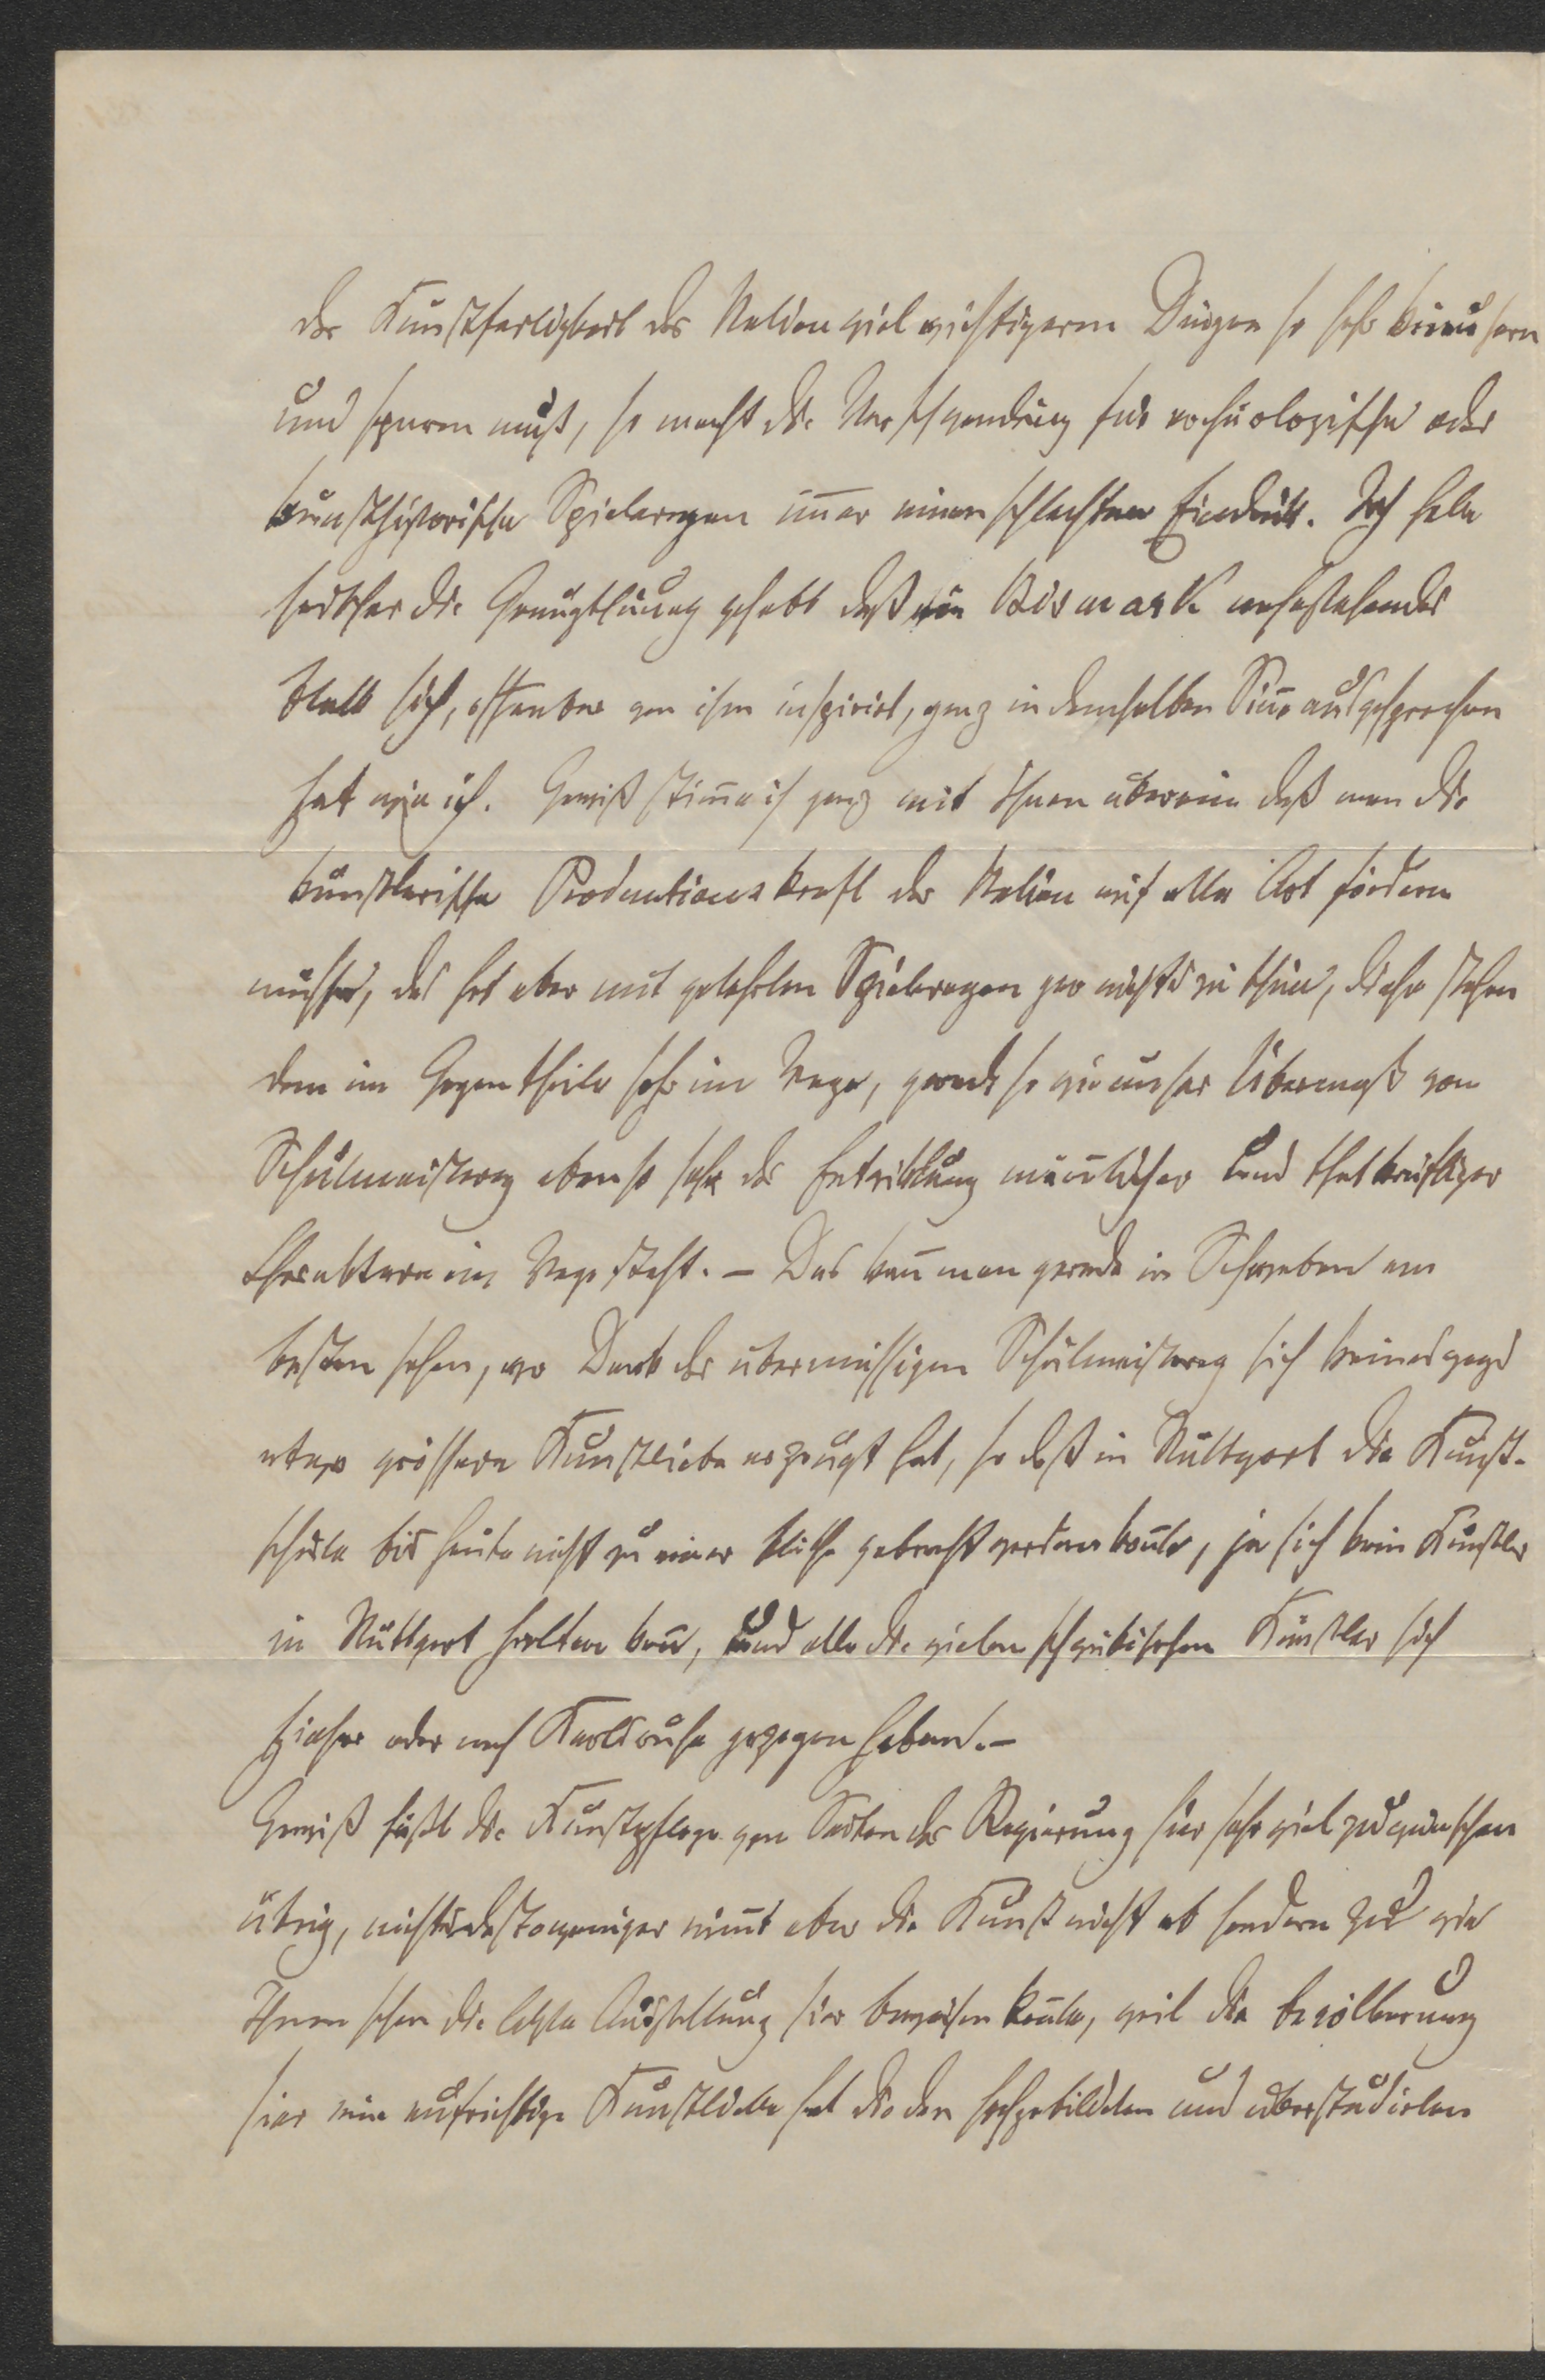 der Kunstfertigkeit der Nation viel wichtigeren Dingen so sehr
und sparen muß, so macht die Verschwendung für archäologische oder
kunsthistorische Spielereyen im̅er einen schlechten Eindruck. Ich habe
seither die Genugthuung gehabt daß ein Bismark nahestehendes
Blatt sich, offenbar von ihm inspirirt, ganz in demselben Sin̅e ausgesprochen
hat wie ich. Gewiß stim̅e ich ganz mit Ihnen überein daß man die
künstlerische Productionskraft der Nation auf alle Art fördern
müsse, das hat aber mit gelehrten Spielereyen gar nichts zu thun, diese stehen
dem im Gegentheile sehr im Wege, gerade so wie unser Übermaß von
Schulmeisterey ebenso sehr der Entwicklung män̅licher und thatkräftiger
Charaktere im Wege steht. – Das kan̅ man gerade in Schwaben am
besten sehen, wo Dank der übermässigen Schulmeisterey sich keineswegs
etwa grössere Kunstliebe erzeugt hat, so daß in Stuttgart die Kunst-
schule bis heute nicht zu einer Blüthe gebracht werden kon̅te, ja sich kein Künstler
in Stuttgart halten kan̅, und alle die vielen schwäbischen Künstler sich
hieher oder nach Karlsruhe gezogen haben. –
Gewiß läßt die Kunstpflege von Seiten der Regierung hier sehr viel zu wünschen
übrig, nichtsdestoweniger nim̅t aber die Kunst nicht ab sondern zu wie
Ihnen schon die letzte Ausstellung hier beweisen kon̅te, weil die Bevölkerung
hier eine aufrichtige Kunstliebe hat die den hochgebildeten und überstudirten